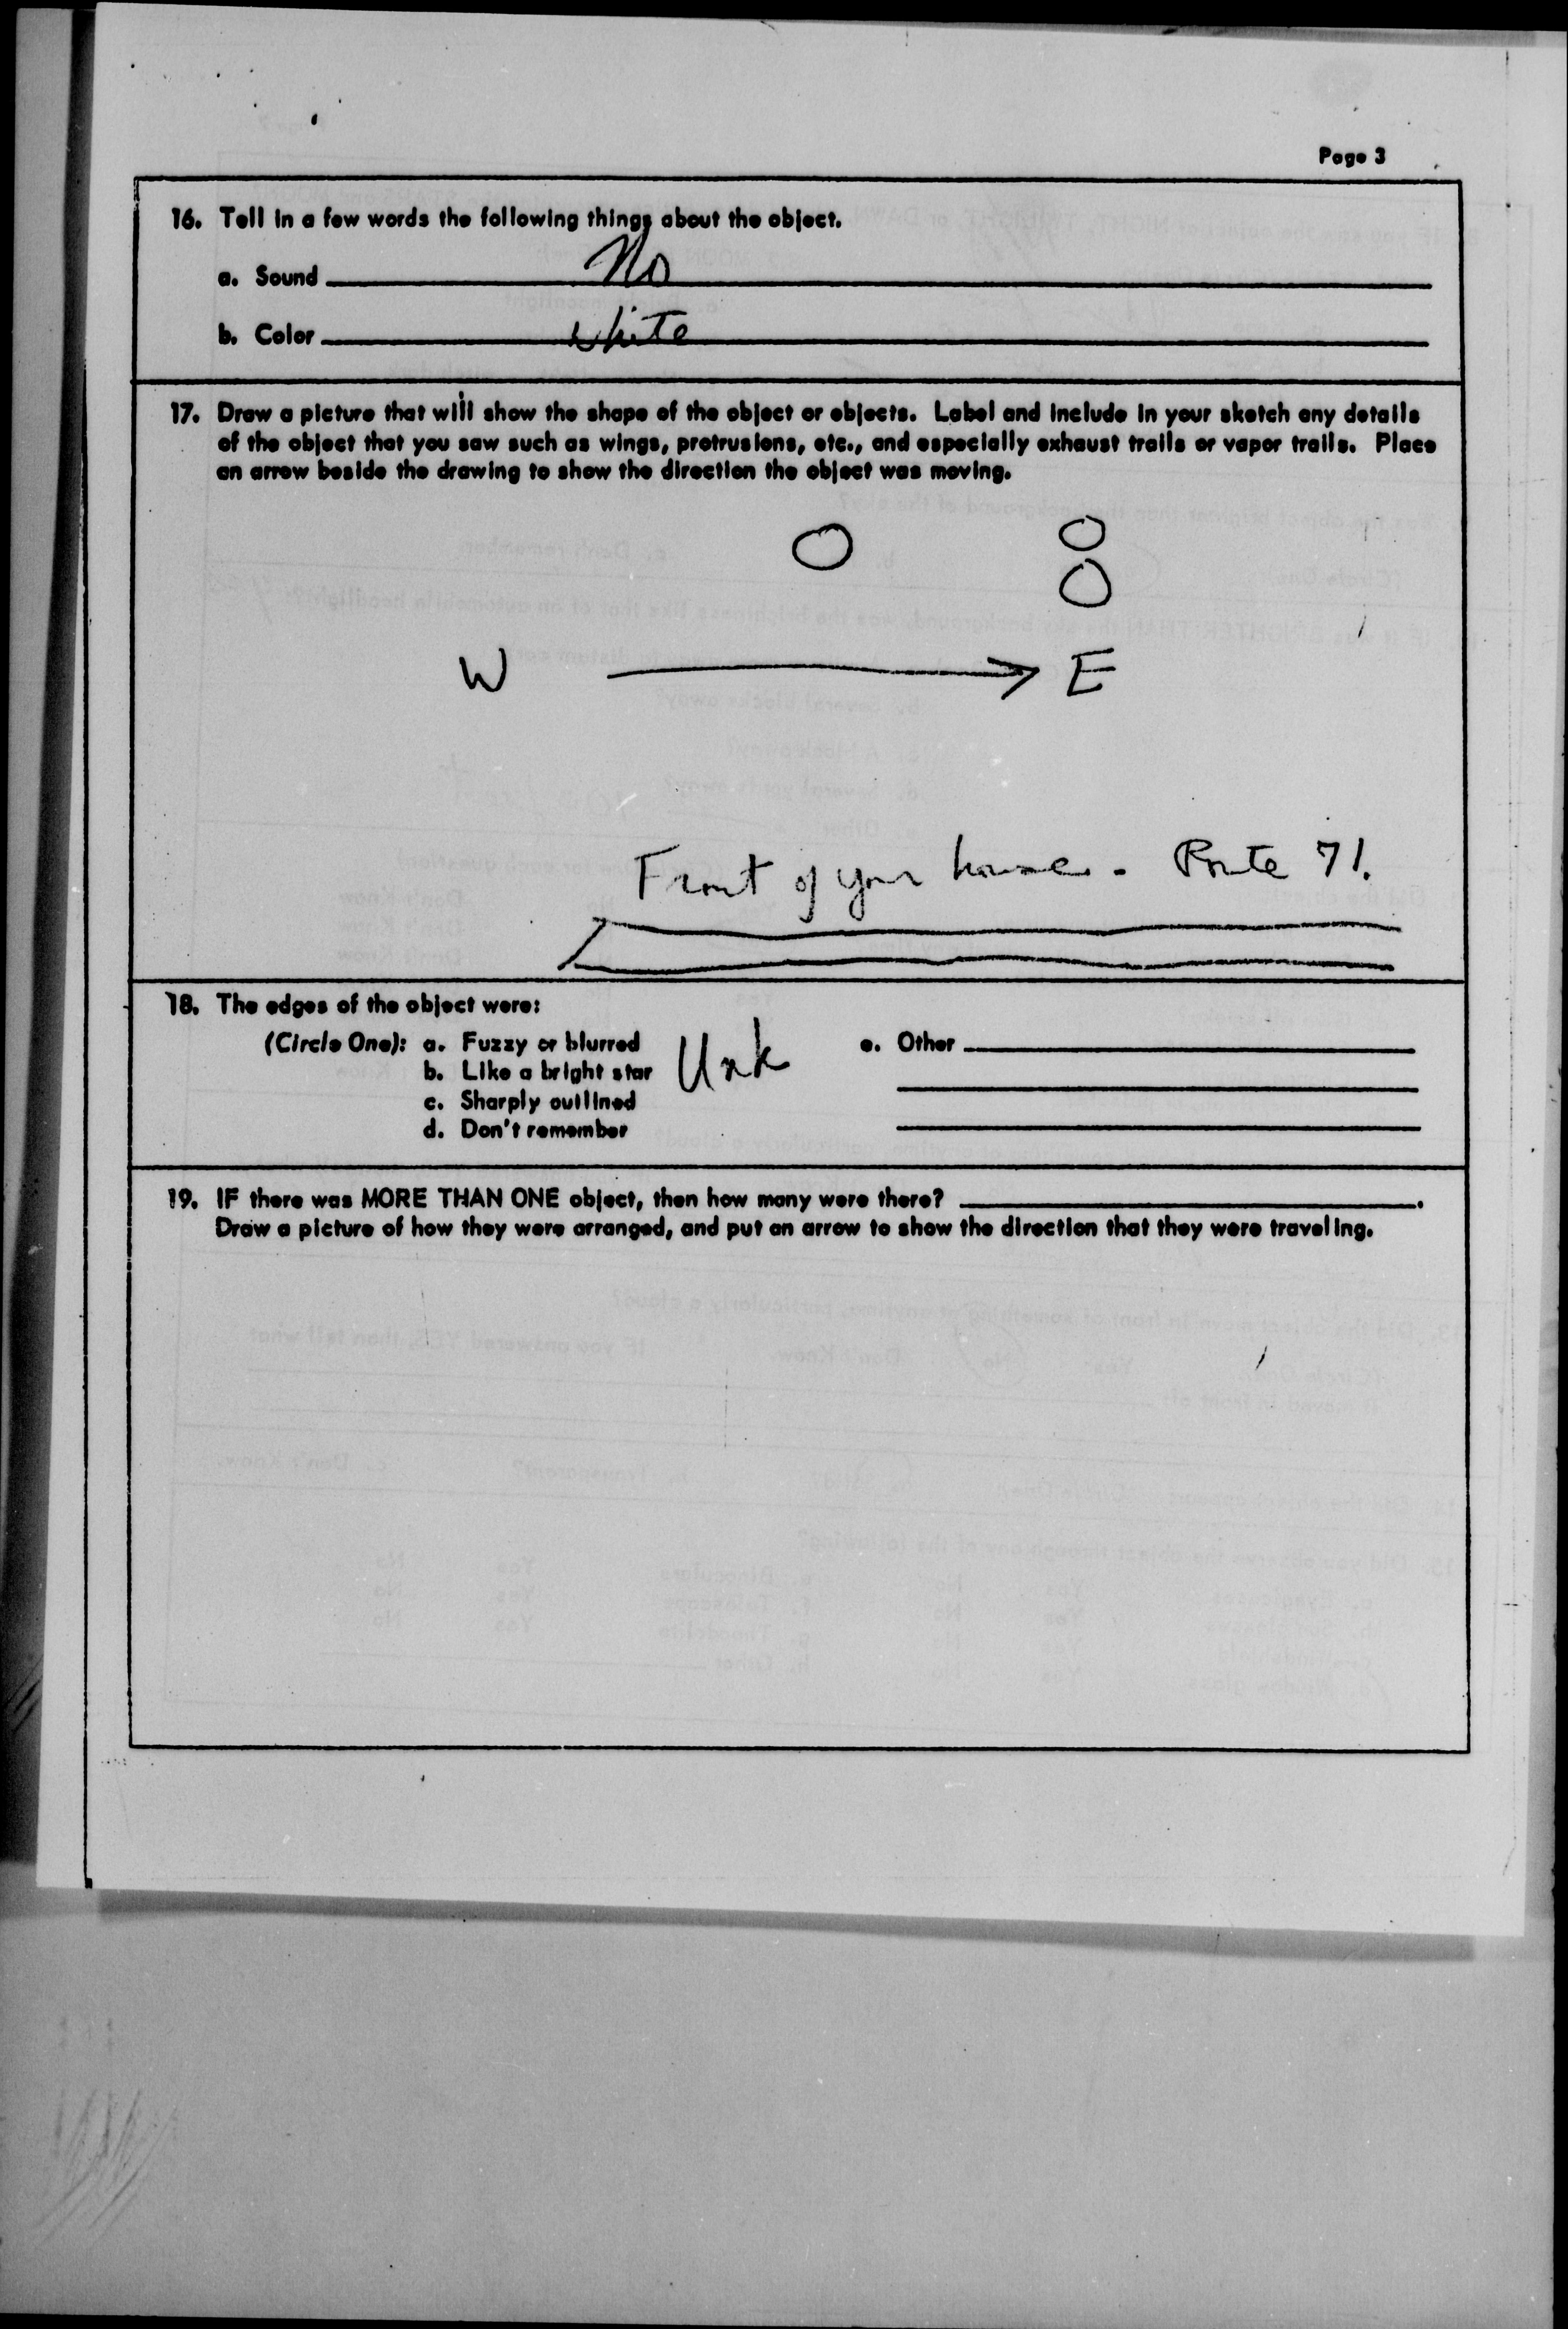 Page 3
16. Tell in a few words the following things about the object.
a. Sound No
b. Color White
17. Draw a picture that will show the shape of the object or objects. Label and include in your sketch any details
of the object that you saw such as wings, protrusions, etc., and especially exhaust trails or vapor trails. Place
an arrow beside the drawing to show the direction the object was moving.
W E
Front of your house - Route 71.
18. The edges of the object were:
(Circle One): a. Fuzzy or blurred Unk e. Other
b. Like a bright star
c. Sharply outlined
d. Don't remember
19. IF there was MORE THAN ONE object, then how many were there?
Draw a picture of how they were arranged, and put an arrow to show the direction that they were traveling.